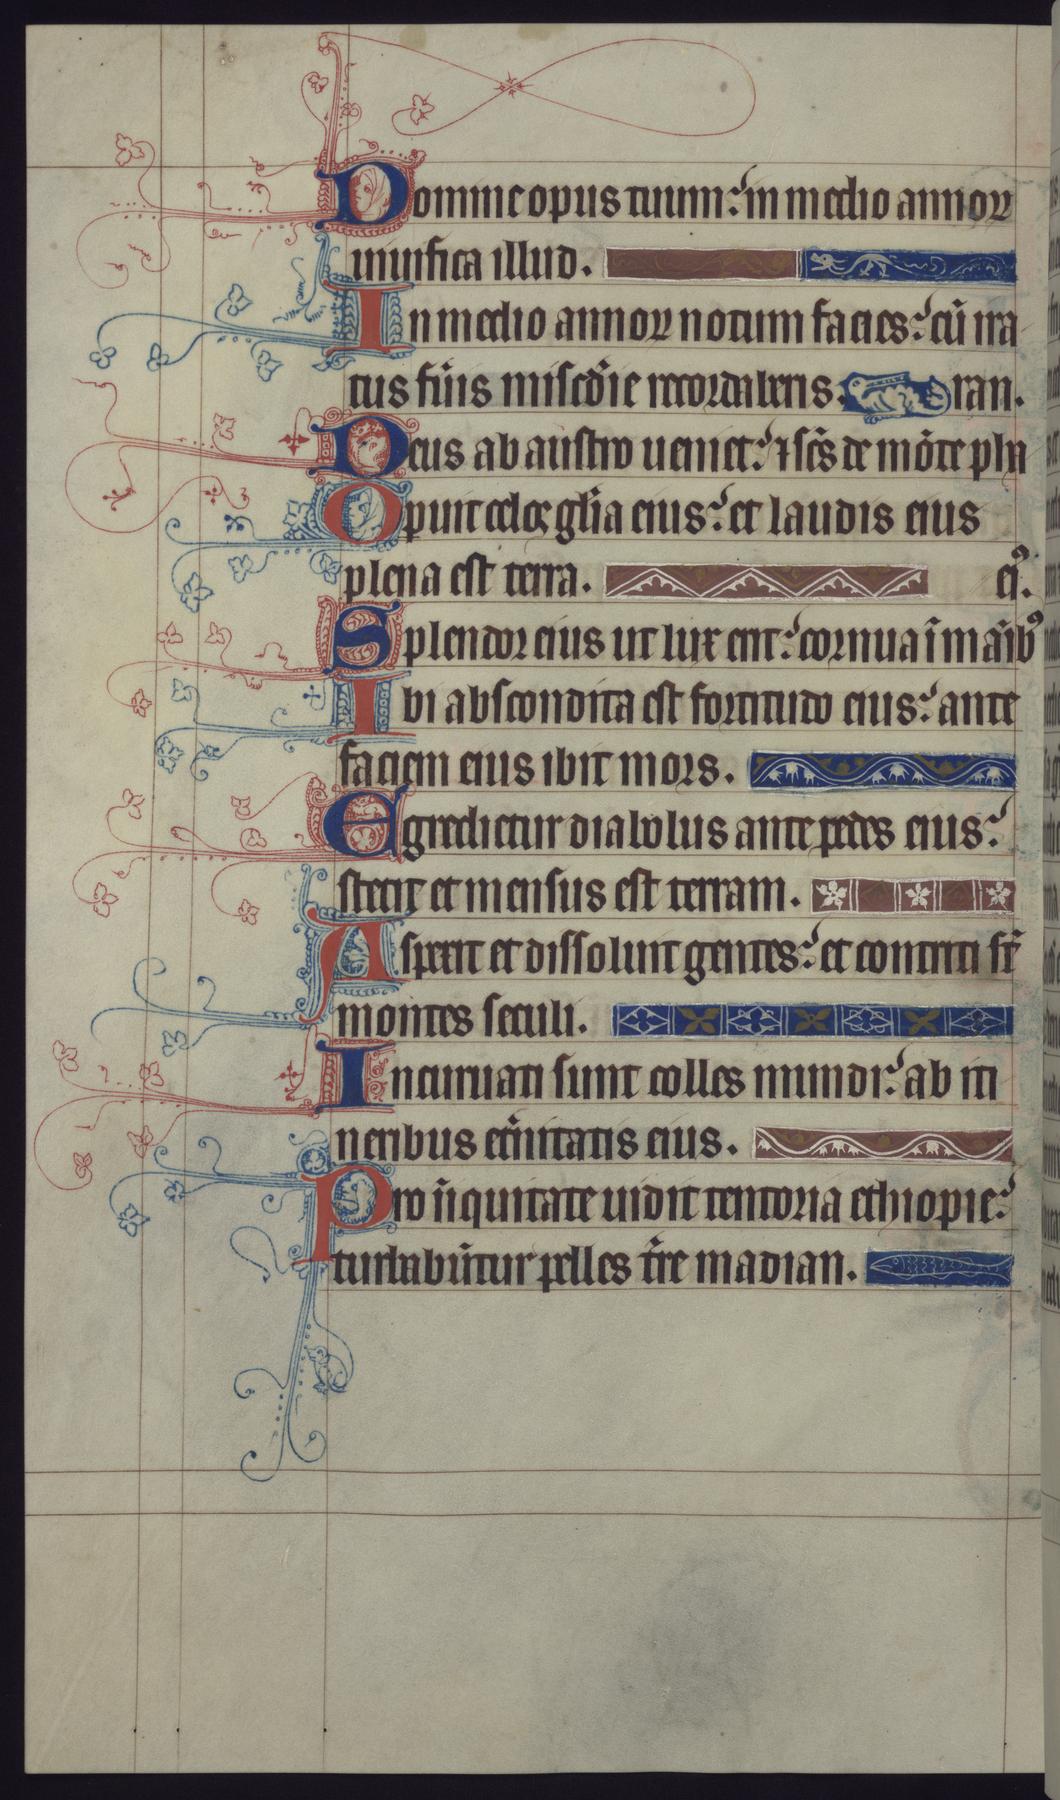 Domine opus tuum: in medio annoꝝ
uiuifica illud.
In medio annoꝝ notum facies: cū ira
tus fu̾is mise᷑cd̄ie recordaberis. ran.
Deus ab austro ueniet: ⁊ sc̄s de mōte pha
Opuit celoꝝ gl̄ia eius: et laudis eius
plena est terra. eiꝰ.
Splendor eius ut lux erit: cornua ī maībꝫ
Ibi abscondita est fortitudo eius: ante
faciem eius ibit mors.
Egredietur diabolus ante pedes eius:
stetit et mensus est terram.
Aspexit et dissoluit gentes: et contriti st̄
montes seculi.
Incuruati sunt colles mundi: ab iti
neribus et̾nitatis eius.
Pro īiquitate uidit tentoria ethiopie:
turbabūtur pelles t̾re madian.